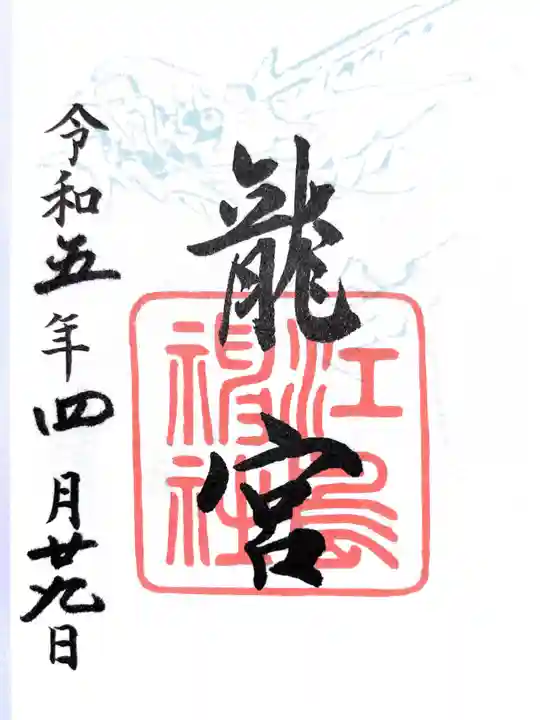 龍宮
江島神社
令和五年四月廿九日